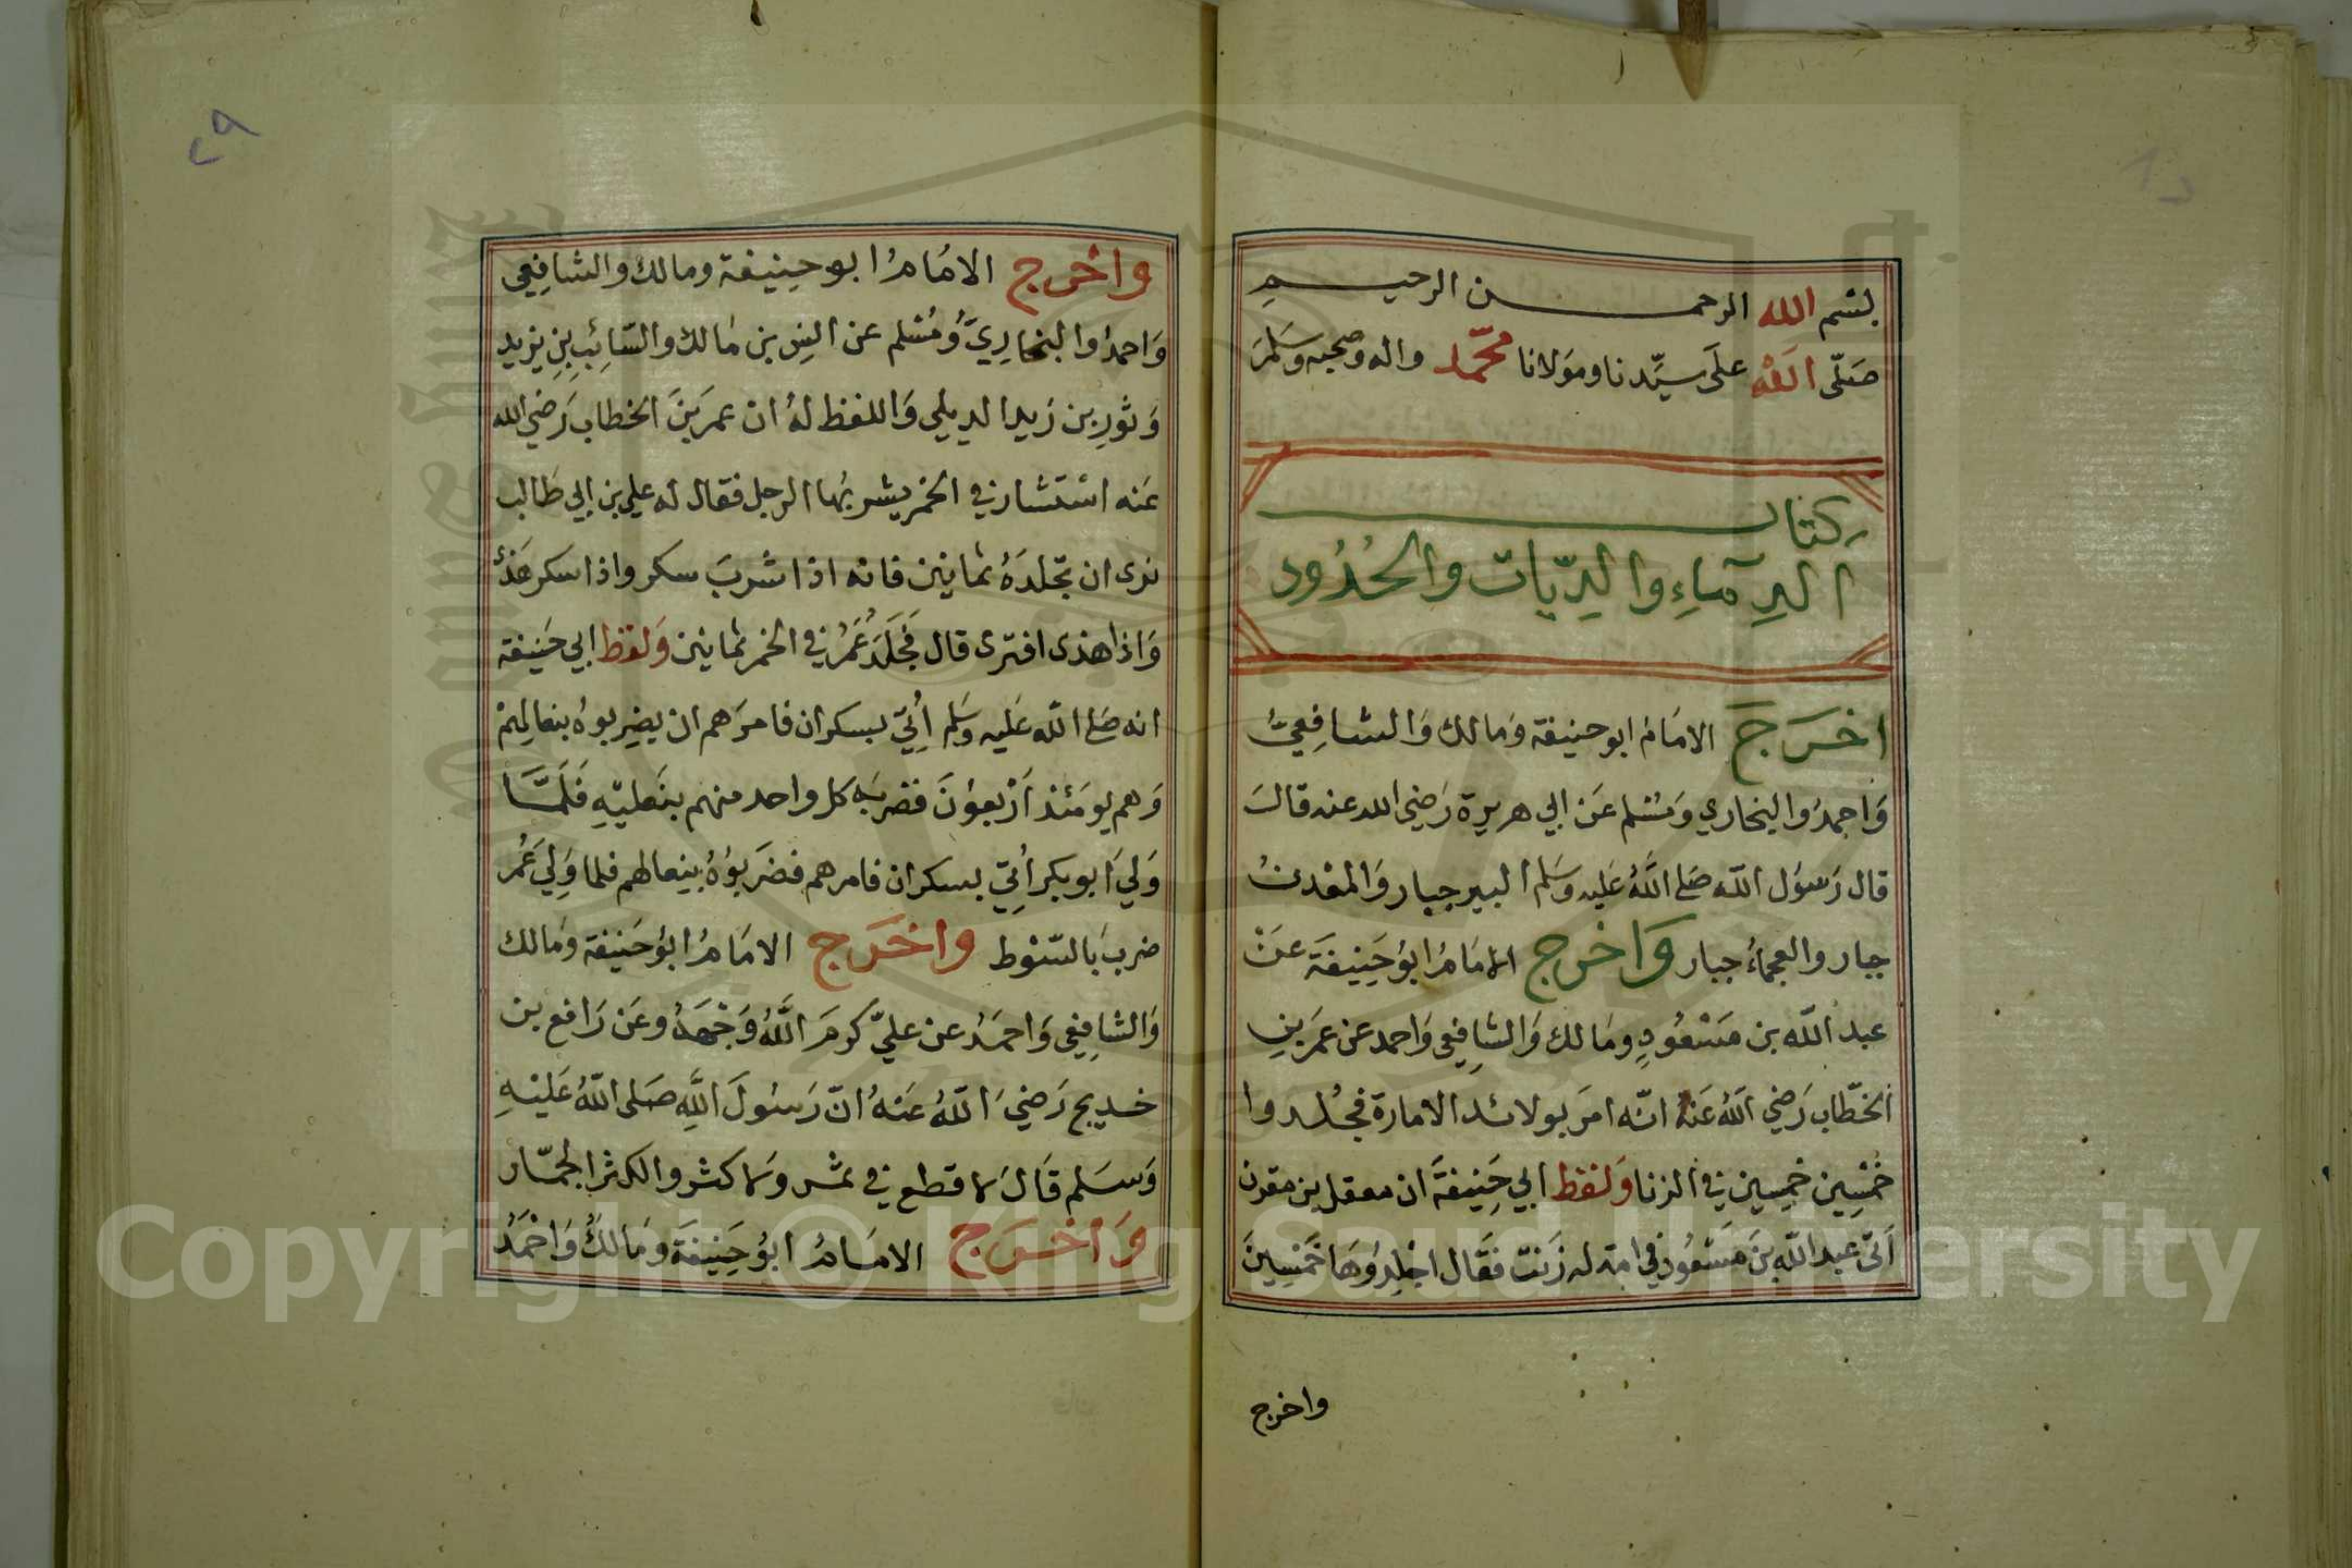 بسم الله الرحمـــن الرحيـــم
صَلّى الله علَى سيّدنا ومَولانا محمّد واله وصحبه وسَلمَ
كتاب
الدِمآءِ والدِيّات والحُدُود
اخرَجَ الامَامُ ابو حنيفة وَمالك وَالشافِعيُّ
وَاحمدُ والبخاري وَمسْلم عَن ابي هريرة رَضي الله عنه قالَ
قال رَسوُل اللّه صَلى اللَّهُ عَليه وسَلم البير جبار وَالمعْدنُ
جبار والعجماءُ جبار وَاخرج الامَامُ ابوُ حَنِيفَة عَنْ
عبد اللّه بن مَسْعُودٍ ومَالك وَالشافِعي وَاحمد عن عمَر بنِ
الخطّاب رَضي اللّهُ عَنهُ انّه امَر بولائد الامارة فجُلدوا
خمْسِين خمسِين في الزنا وَلفظ ابي حَنِيفَةَ ان معقل بن مقرن
اَتى عبد اللّه بنَ مَسْعُود في امَة له زَنت فقَال اجْلِدُوهَا خَمْسِينَ
واخرج
٢٩
واخرج الامَامُ ابو حنِيفة ومالك والشافِعي
وَاحمدُ والبخارِيّ وُمُسْلم عن انسِ بن مَالك والسّائِبِ بنِ يزيد
وَثورِ بن زَيد الديلي وَاللفظ لهُ ان عمرَ بنَ الخطاب رَضي الله
عَنه اسْتشار في الخمر يشربُها الرجل فقال له علي بن ابي طَالب
نرى ان تجّلدَهُ ثمانِين فانه اذا شربَ سكر واذا سكر هَذى
وَاذا هذى افترى قال فَجَلَدَ عُمَرُ في الخمر ثمانين وَلفظ ابي حَنيفة
انه صَلى اللّه عَليه وسَلم اُتِيَ بسكران فامرَهم ان يضِربوهُ بنعالِهمْ
وَهم يومَئذ اَرْبعوُنَ فضربَه كل واحد منهم بنَعليْهِ فَلَمَّا
وَلِيَ ابو بكر اُتِيَ بسكران فامرهم فضَربوُهُ بنِعالهم فلما وَلِيَ عُمر
ضربَ بالسّوْط واخرَج الامَامُ ابوُ حَنيفة وَمالك
وَالشافِعِي وَاحمَدُ عن عليّ كرمَ اللَّهُ وَجْهَهُ وعَن رَافع بن
خديج رَضيَ اللّهُ عَنهُ انّ رَسُولَ اللَّهِ صَلى اللّهُ عَليْهِ
وَسَلم قَالَ لا قطع في ثمَر وَلا كثر والكثر الجمّار
وَاخرَج الامَامُ ابوُ حَنِيفَة ومَالكُ وَاحْمَدُ
Copyright © King Saud University